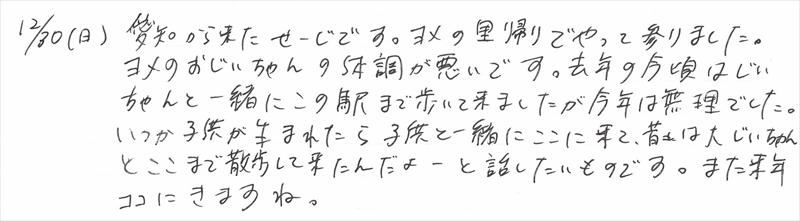 12/30(日) 愛知から来たせーじです。ヨメの里帰りでやって参りました。
ヨメのおじいちゃんの体調が悪いです。去年の今頃はじい
ちゃんと一緒にこの駅まで歩いて来ましたが今年は無理でした。
いつか子供が生まれたら子供と一緒にここに来て、昔は大じいちゃん
とここまで散歩して来たんだよーと話したいものです。また来年
ココにきますね。